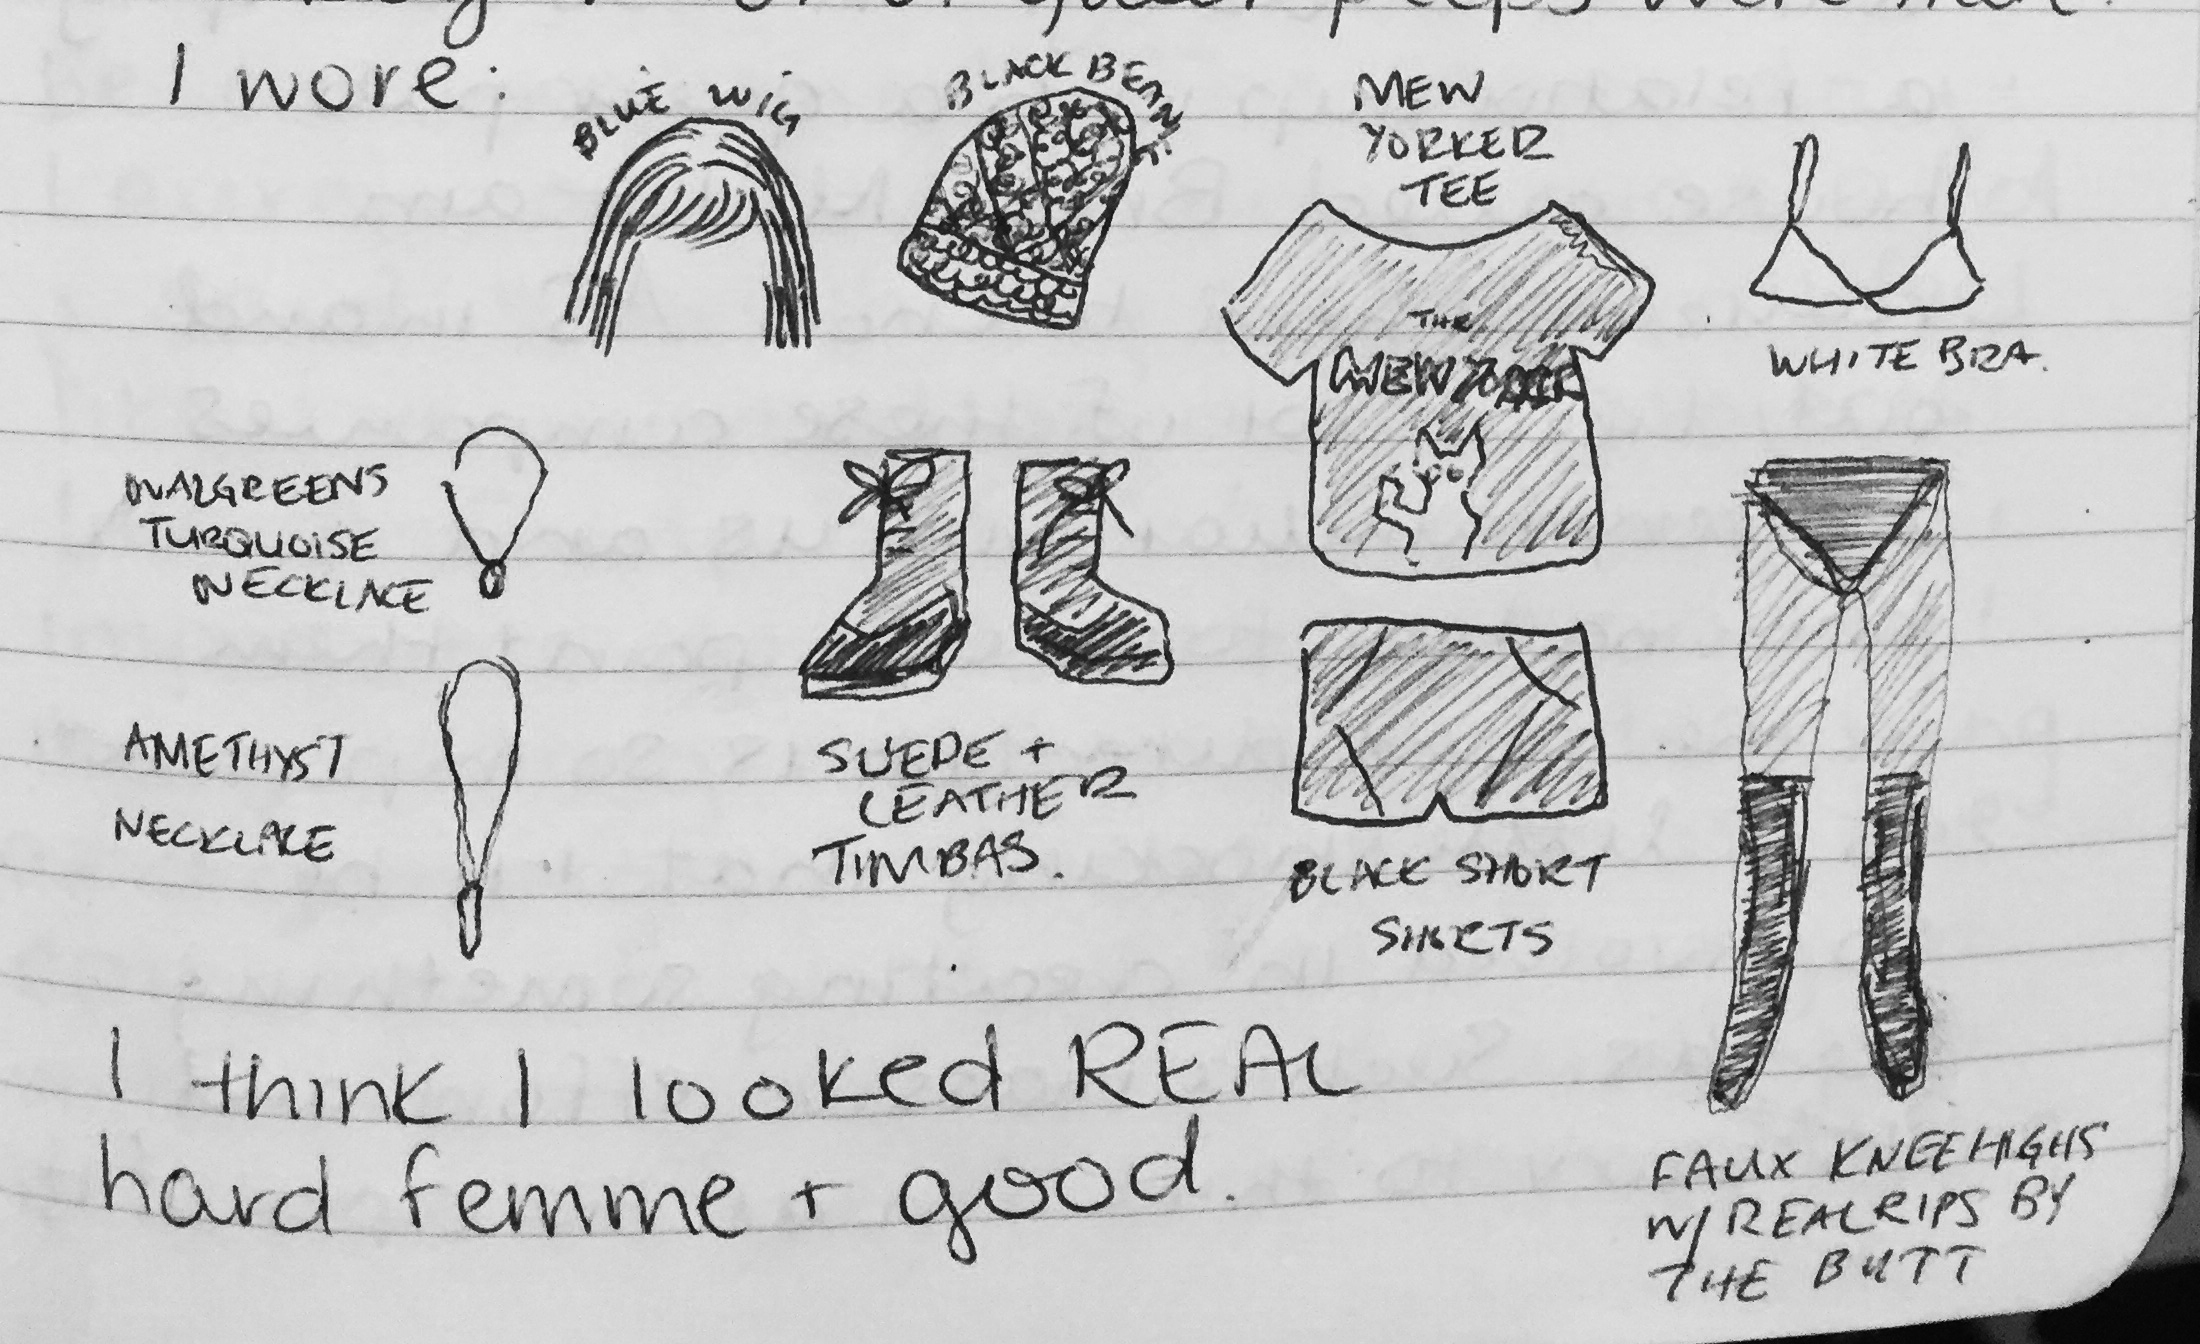 peeps were
I wore:
BLUE WIG
BLACK BEANI
MEW
YORKER
TEE
THE
MEW YORKER
WHITE BRA.
WALGREENS
TURQUOISE
NECKLACE
AMETHYST
NECKLACE
SUEDE +
LEATHER
TIMBAS.
BLACK SHORT
SHORTS
FAUX KNEEHIGHS
W/ REAL RIPS BY
THE BUTT
I think I looked REAL
hard femme + good.